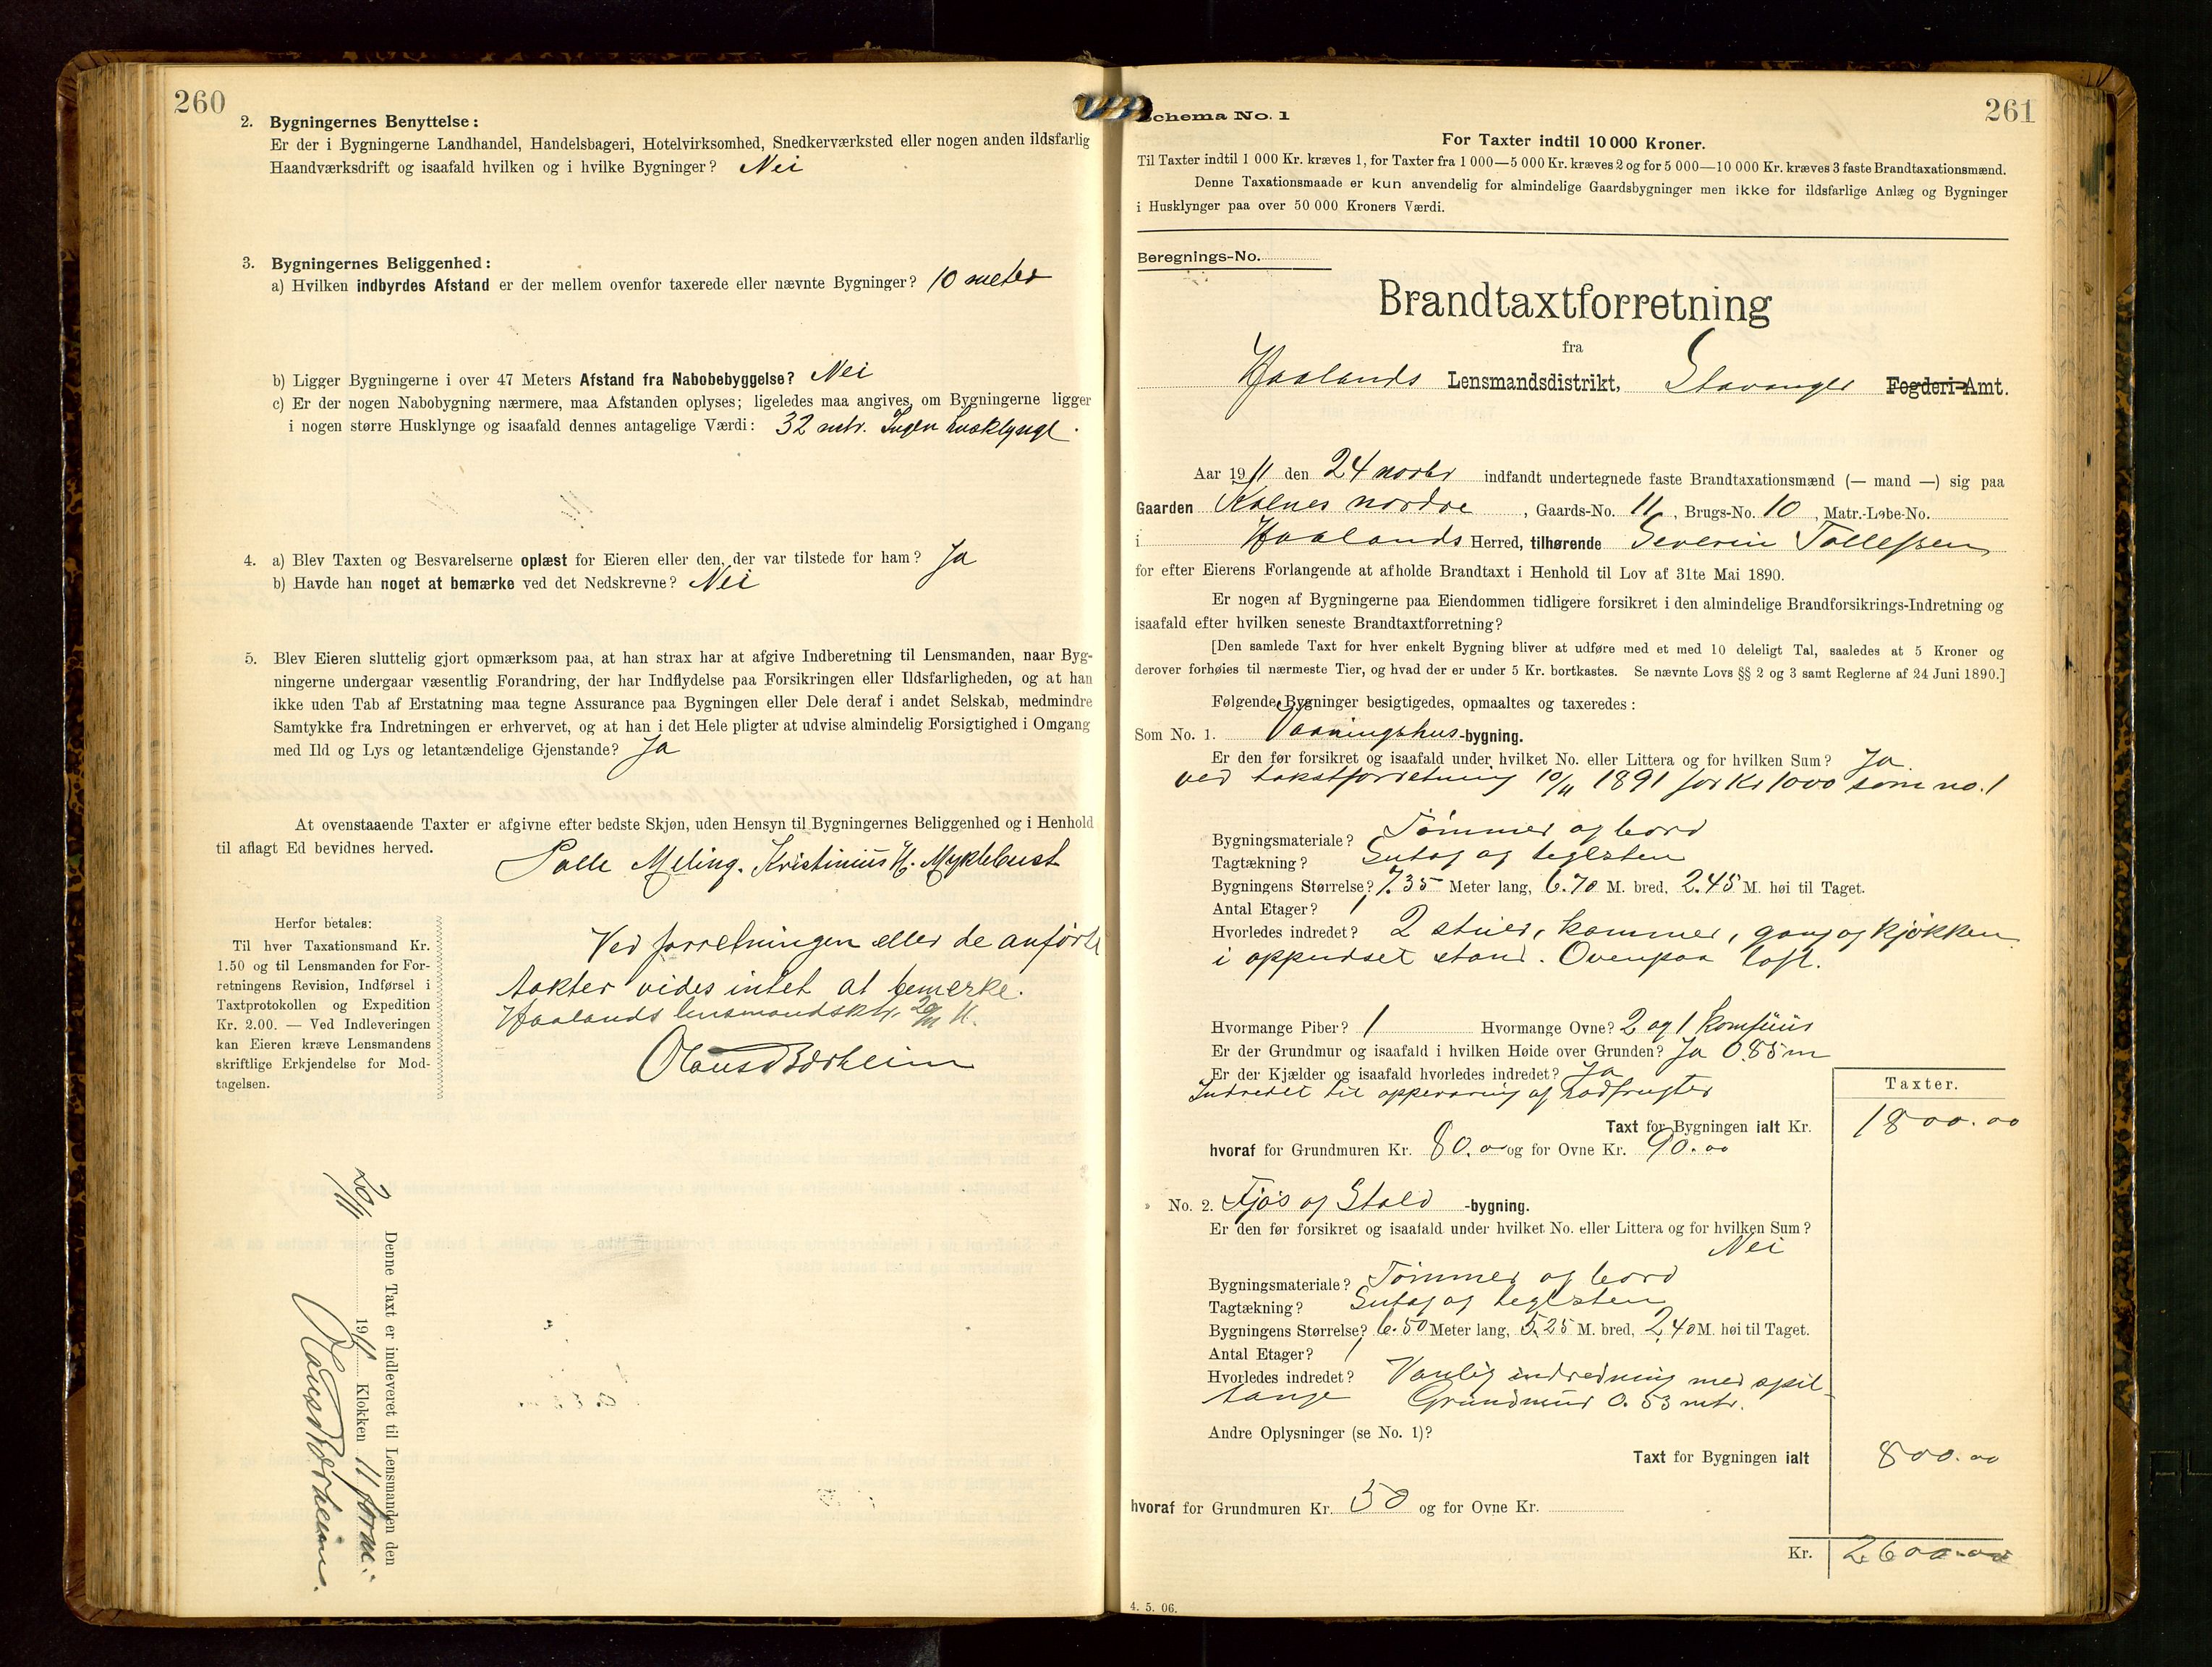 260
2. Bygningernes Benyttelse:
Er der i Bygningerne Landhandel, Handelsbageri, Hotelvirksomhed, Snedkerværksted eller nogen anden ildsfarlig
Haandværksdrift og isaafald hvilken og i hvilke Bygninger? Nei
3. Bygningernes Beliggenhed:
a) Hvilken indbyrdes Afstand er der mellem ovenfor taxerede eller nævnte Bygninger? 10 meter
b) Ligger Bygningerne i over 47 Meters Afstand fra Nabobebyggelse? Nei
c) Er der nogen Nabobygning nærmere, maa Afstanden oplyses; ligeledes maa angives, om Bygningerne ligger
i nogen større Husklynge og isaafald dennes antagelige Værdi: 32 mtr. Ingen husklynge.
4. a) Blev Taxten og Besvarelserne oplæst for Eieren eller den, der var tilstede for ham? Ja
b) Havde han noget at bemærke ved det Nedskrevne? Nei
5. Blev Eieren sluttelig gjort opmærksom paa, at han strax har at afgive Indberetning til Lensmanden, naar Byg-
ningerne undergaar væsentlig Forandring, der har Indflydelse paa Forsikringen eller Ildsfarligheden, og at han
ikke uden Tab af Erstatning maa tegne Assurance paa Bygningen eller Dele deraf i andet Selskab, medmindre
Samtykke fra Indretningen er erhvervet, og at han i det Hele pligter at udvise almindelig Forsigtighed i Omgang
med Ild og Lys og letantændelige Gjenstande? Ja
At ovenstaaende Taxter er afgivne efter bedste Skjøn, uden Hensyn til Bygningernes Beliggenhed og i Henhold
til aflagt Ed bevidnes herved.
Salle Meling. Kristinius H. Myklebust
Herfor betales:
Til hver Taxationsmand Kr.
1.50 og til Lensmanden for For-
retningens Revision, Indførsel i
Taxtprotokollen og Expedition
Kr. 2.00. — Ved Indleveringen
kan Eieren kræve Lensmandens
skriftlige Erkjendelse for Mod-
tagelsen.
Ved forretningen eller de anførte
takter vides intet at bemerke.
Haalands lensmandsktr. 29/11 11.
Olaus Børheim
Denne Taxt er indleveret til Lensmanden den
29/11 1911 Klokken 11 form.
Olaus Børheim.
261
Schema No. 1
For Taxter indtil 10 000 Kroner.
Til Taxter indtil 1 000 Kr. kræves 1, for Taxter fra 1 000—5 000 Kr. kræves 2 og for 5 000—10 000 Kr. kræves 3 faste Brandtaxationsmænd.
Denne Taxationsmaade er kun anvendelig for almindelige Gaardsbygninger men ikke for ildsfarlige Anlæg og Bygninger
i Husklynger paa over 50 000 Kroners Værdi.
Beregnings-No.
Brandtaxtforretning
fra
Haalands Lensmandsdistrikt, Stavanger Fogderi-Amt.
Aar 1911 den 24 novbr indfandt undertegnede faste Brandtaxationsmænd (— mand —) sig paa
Gaarden Kolnes nordre, Gaards-No. 11, Brugs-No. 10, Matr.-Løbe-No.
i Haalands Herred, tilhørende Severin Tollefsen
for efter Eierens Forlangende at afholde Brandtaxt i Henhold til Lov af 31te Mai 1890.
Er nogen af Bygningerne paa Eiendommen tidligere forsikret i den almindelige Brandforsikrings-Indretning og
isaafald efter hvilken seneste Brandtaxtforretning?
[Den samlede Taxt for hver enkelt Bygning bliver at udføre med et med 10 deleligt Tal, saaledes at 5 Kroner og
derover forhøies til nærmeste Tier, og hvad der er under 5 Kr. bortkastes. Se nævnte Lovs §§ 2 og 3 samt Reglerne af 24 Juni 1890.]
Følgende Bygninger besigtigedes, opmaaltes og taxeredes:
Som No. 1. Vaaningshus-bygning.
Er den før forsikret og isaafald under hvilket No. eller Littera og for hvilken Sum? Ja
ved takstforretning 10/11 1891 for Kr 1000 som no. 1
Bygningsmateriale? Tømmer og bord
Tagtækning? Sutag og teglsten
Bygningens Størrelse? 7.35 Meter lang, 6.70 M. bred, 2.45 M. høi til Taget.
Antal Etager? 1
Hvorledes indredet? 2 stuer, kammer, gang og kjøkken
i oppudset stand. Ovenpaa loft.
Hvormange Piber? 1 Hvormange Ovne? 2 og 1 komfuur
Er der Grundmur og isaafald i hvilken Høide over Grunden? Ja 0.85 m
Er der Kjælder og isaafald hvorledes indredet? Ja
Indredet til oppevaring af rodfrugter
Taxter.
Taxt for Bygningen ialt Kr. 1800.00
hvoraf for Grundmuren Kr. 80.00 og for Ovne Kr. 90.00
» No. 2. Fjøs og Stald -bygning.
Er den før forsikret og isaafald under hvilket No. eller Littera og for hvilken Sum?
Nei
Bygningsmateriale? Tømmer og bord
Tagtækning? Sutag og teglsten
Bygningens Størrelse? 6.50 Meter lang, 5.25 M. bred, 2.40 M. høi til Taget.
Antal Etager? 1
Hvorledes indredet? Vanlig indredning med spil-
tange Grundmur 0.53 mtr.
Andre Oplysninger (se No. 1)?
Taxt for Bygningen ialt 800.00
hvoraf for Grundmuren Kr. 50 og for Ovne Kr.
Kr. 2600.00
4. 5. 06.